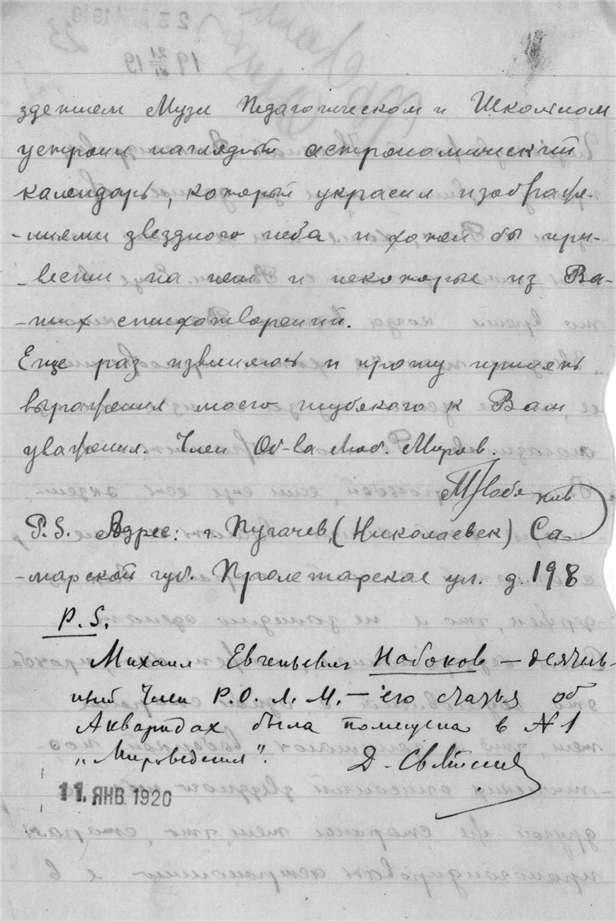 19 21/XI 19
зданием Музе Педагогическом и Школьном
устроил наглядный астрономический
календарь, который украсил изображе-
-ниями звездного неба и хотел бы при-
-вести на нем и некоторые из Ва-
-ших стихотворений.
Еще раз извиняюсь и прошу принять
выражения моего глубокого к Вам
уважения. Член Об-ва Люб. Миров.
МНабоков
P.S. Адрес: г. Пугачев, (Николаевск) Са-
-марской губ. Пролетарская ул. д. 198
P.S.
Михаил Евгеньевич Набоков – деятель-
ный член Р.О.Л.М. – его статья об
Акваридах была помещена в N 1
„Мироведения“. Д. Святский
11. ЯНВ. 1920